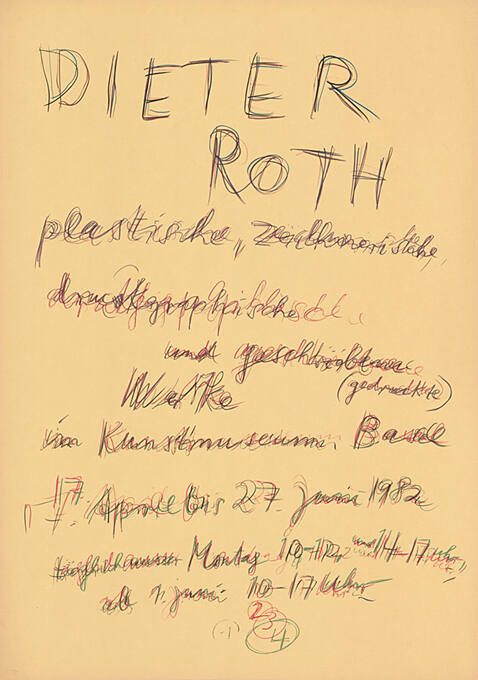 DIETER
ROTH
plastische, zeichnerische,
druckgraphische
und geschriebene
Werke (gedruckte)
im Kunstmuseum Basel
17. April bis 27. Juni 1982
täglich ausser Montag 10-12, und 14-17 Uhr,
ab 1. Juni 10-17 Uhr
2
3
(-1) 4